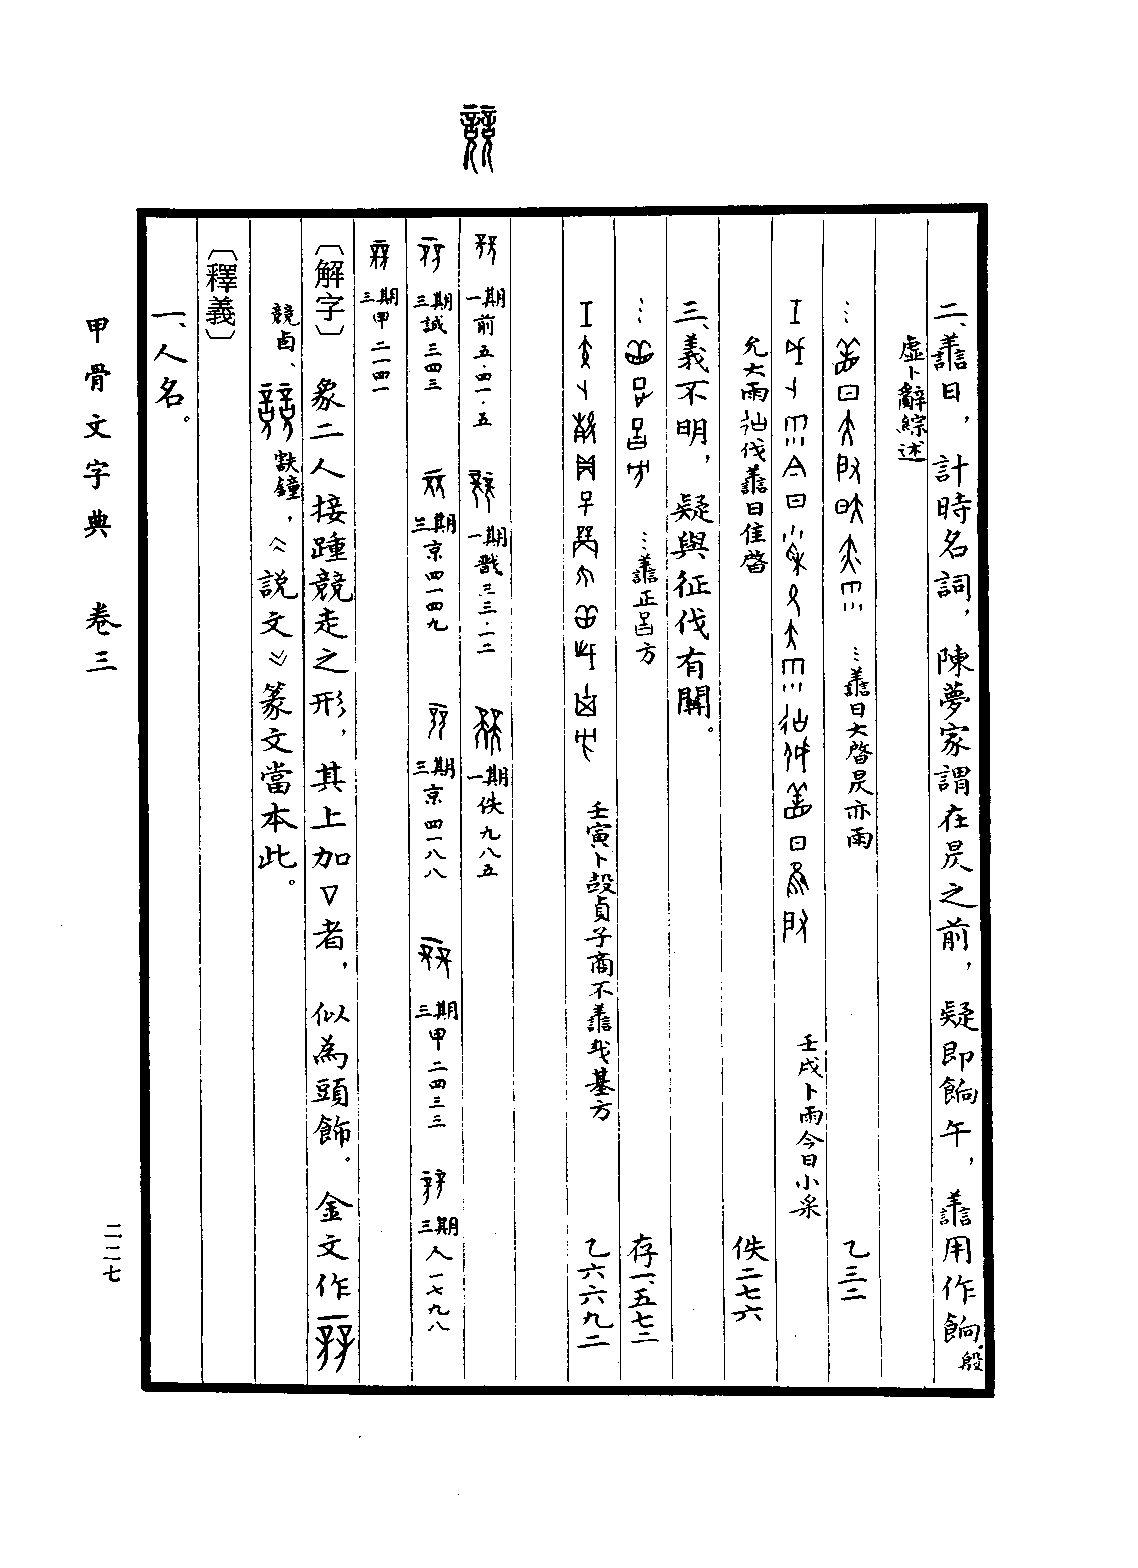 二、譱日，計時名詞，陳夢家謂在昃之前，疑即餉午，譱用作餉。殷
虛卜辭綜述
…譱日大啓昃亦雨 乙三二
壬戌卜雨今日小采
允大雨㣥伐譱日隹啓 佚二七六
三、義不明，疑與征伐有關。
…譱正𠮷方 存一、五七二
壬寅卜㱿貞子商不譱𢦏基方 乙六六九二
一期前五·四一·五 一期戩三三·一二 一期佚九八五
三期誠三四三 三期京四一四九 三期京四一八八 三期甲二四三三 三期人一七九八
三期甲二一四一
〔解字〕象二人接踵競走之形，其上加▽者，似為頭飾。金文作
競卣、㝬鐘，《説文》篆文當本此。
〔釋義〕
一、人名。
甲骨文字典 卷三
二二七